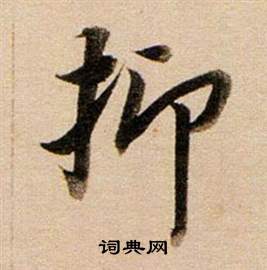 抑
词典网